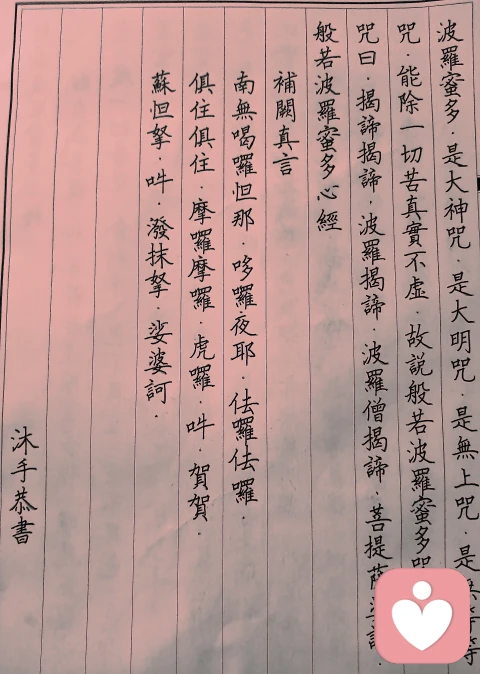 波羅蜜多．是大神咒．是大明咒．是無上咒．是無等等
咒．能除一切苦真實不虛．故説般若波羅蜜多咒
咒曰．揭諦揭諦．波羅揭諦．波羅僧揭諦．菩提薩
般若波羅蜜多心經
補闕真言
南無喝囉怛那．哆囉夜耶．佉囉佉囉．
俱住俱住．摩囉摩囉．虎囉．吽．賀賀．
蘇怛拏．吽．潑抹拏．娑婆訶．
沐手恭書